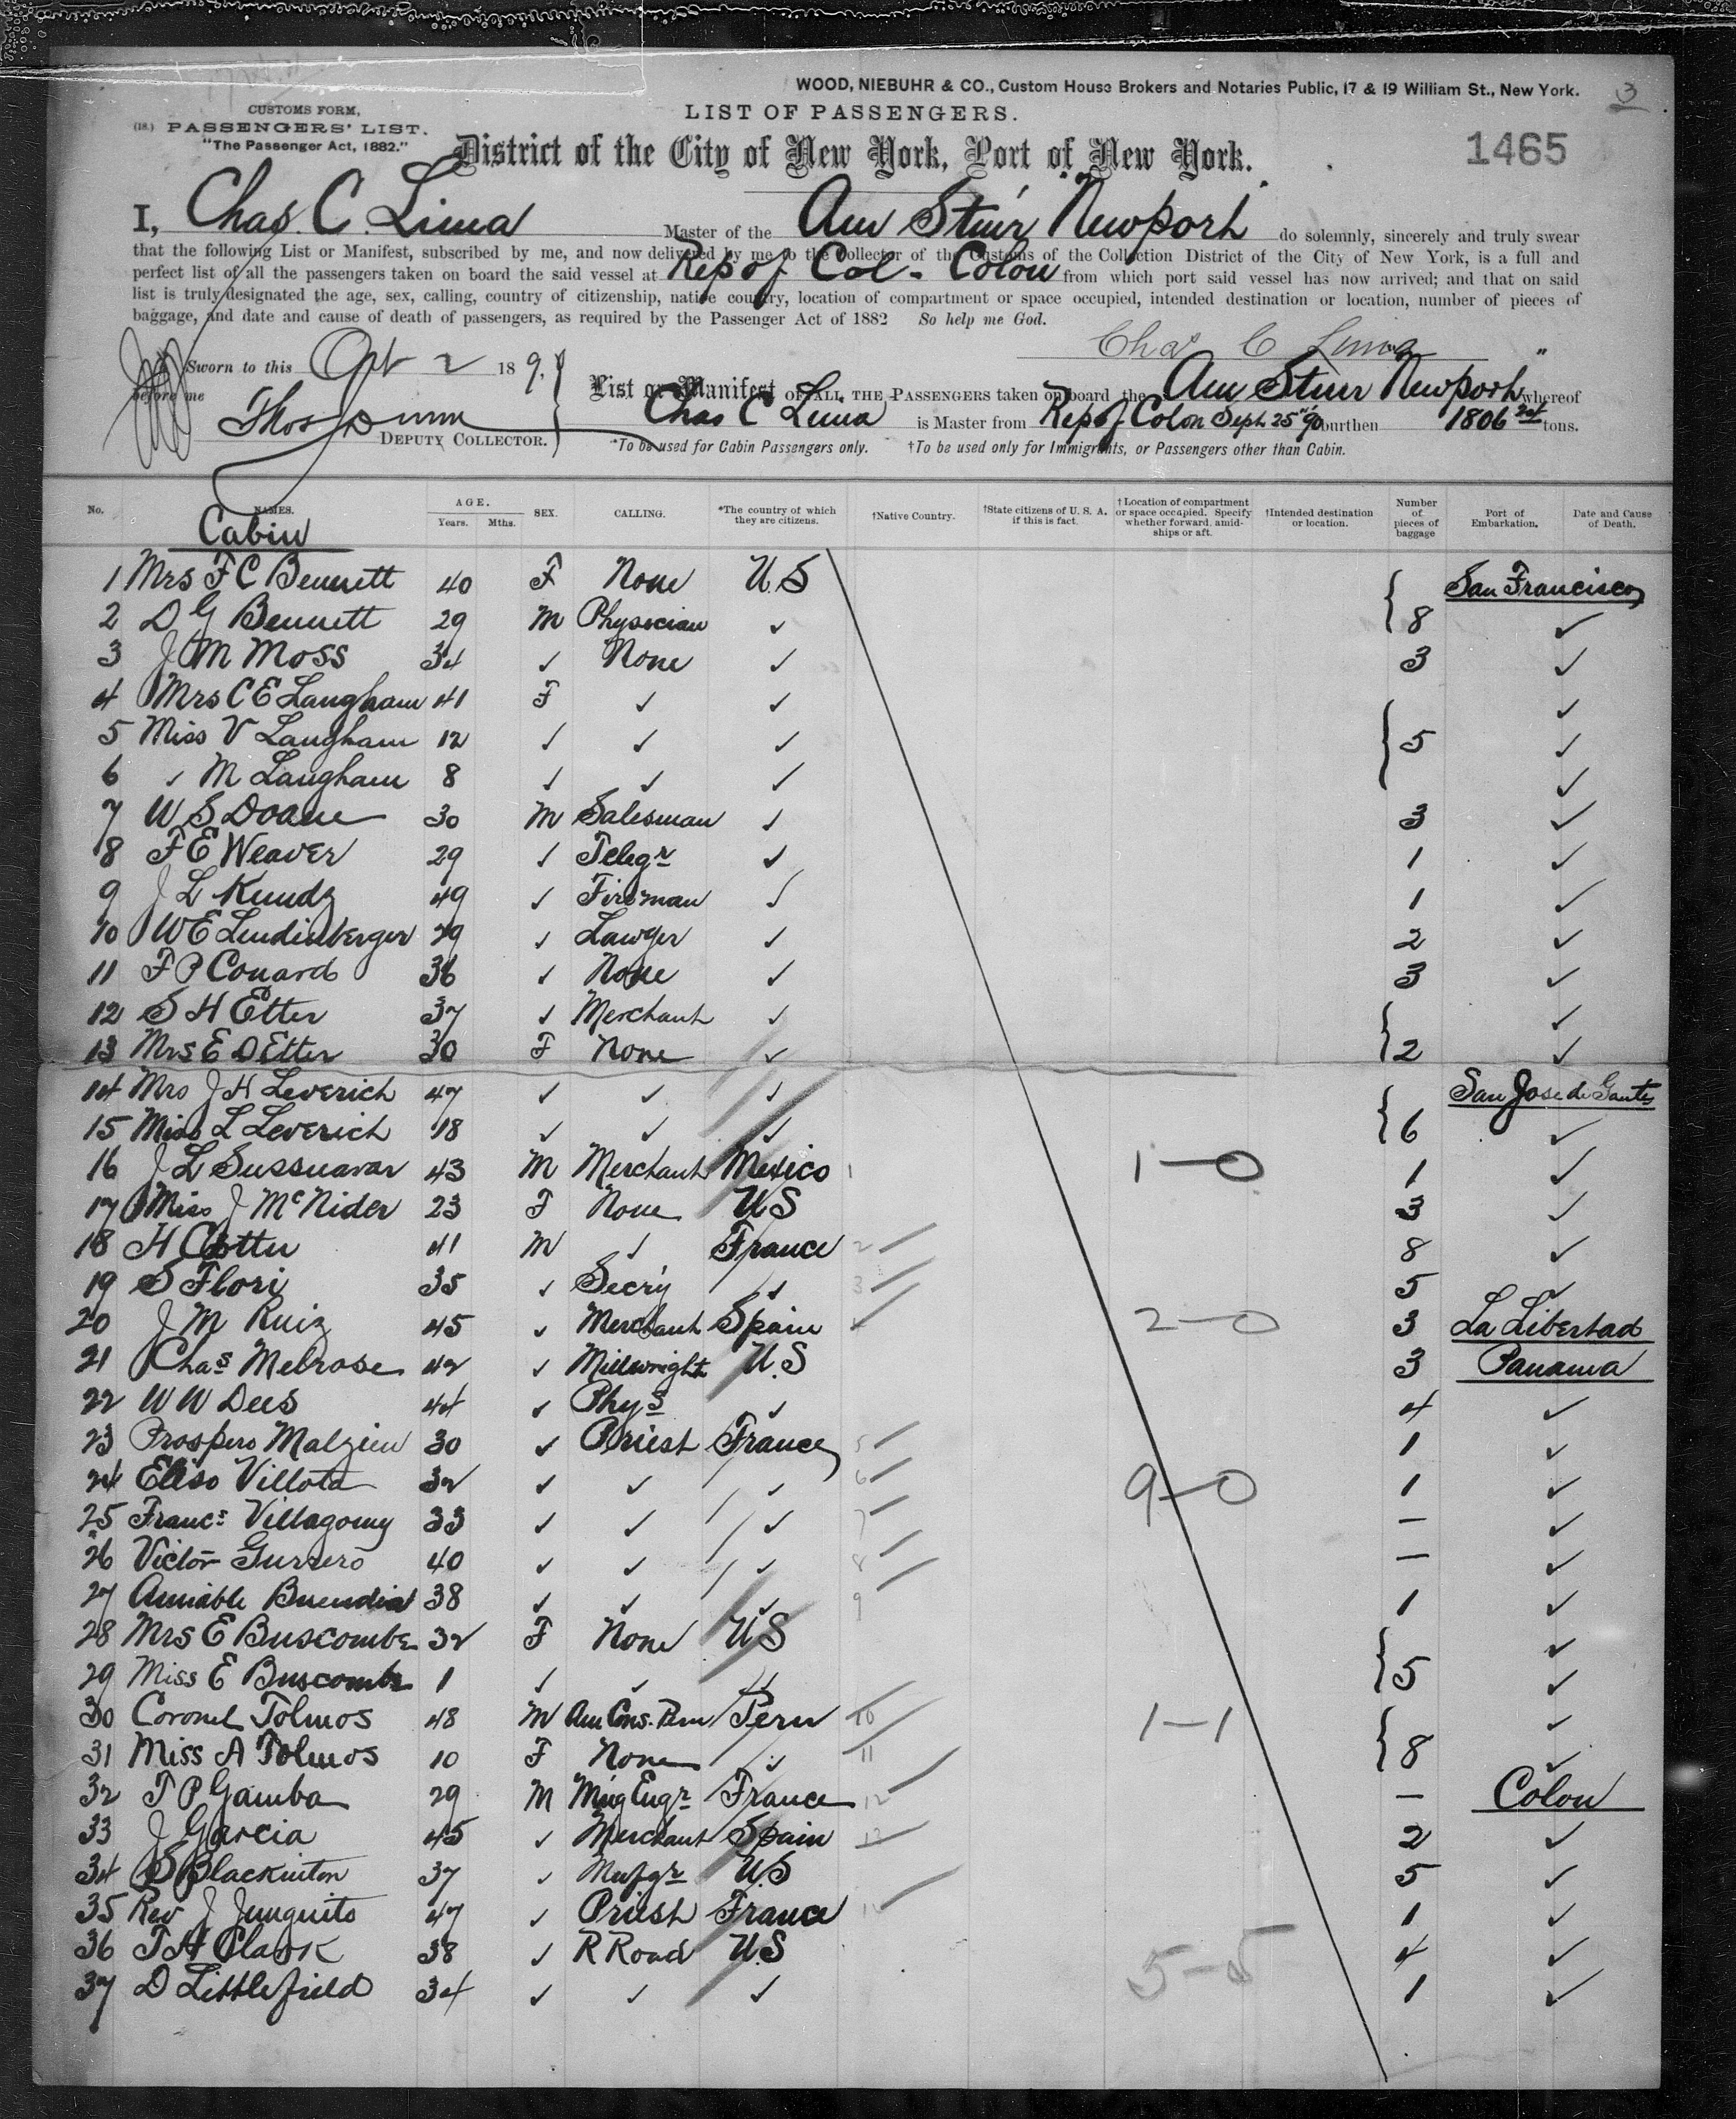 WOOD, NIEBUHR & CO., Custom House Brokers and Notaries Public, 17 & 19 William St., New York. 3
CUSTOMS FORM,
(18.) PASSENGERS' LIST.
"The Passenger Act, 1882."
LIST OF PASSENGERS.
District of the City of New York, Port of New York.
1465
I, Chas. C. Lima Master of the Am Stmr "Newport" do solemnly, sincerely and truly swear
that the following List or Manifest, subscribed by me, and now delivered by me to the Collector of the Customs of the Collection District of the City of New York, is a full and
perfect list of all the passengers taken on board the said vessel at Rep of Col - Colon from which port said vessel has now arrived; and that on said
list is truly designated the age, sex, calling, country of citizenship, native country, location of compartment or space occupied, intended destination or location, number of pieces of
baggage, and date and cause of death of passengers, as required by the Passenger Act of 1882 So help me God.
Chas C Lima
Sworn to this Oct 2 189
before me
Thos Dunn
DEPUTY COLLECTOR.
List or Manifest OF ALL THE PASSENGERS taken on board the Am Stmr Newport whereof
Chas C Lima is Master from Rep of Colon Sept 25" 90 burthen 1806 tons.
*To be used for Cabin Passengers only. †To be used only for Immigrants, or Passengers other than Cabin.
No. NAMES. AGE. Years. Mths. SEX. CALLING. *The country of which they are citizens. †Native Country. †State citizens of U. S. A. if this is fact. †Location of compartment or space occupied. Specify whether forward, amidships or aft. †Intended destination or location. Number of pieces of baggage Port of Embarkation. Date and Cause of Death.
Cabin
1 Mrs F C Bennett 40 F None U.S San Francisco
2 D G Bennett 29 M Physician ✓ 8 ✓
3 J M Moss 34 ✓ None ✓ 3 ✓
4 Mrs C E Langham 41 F ✓ ✓ ✓
5 Miss V Langham 12 ✓ ✓ ✓ 5 ✓
6 ✓ M Langham 8 ✓ ✓ ✓ ✓
7 W S Doane 30 M Salesman ✓ 3 ✓
8 F E Weaver 29 ✓ Telegr ✓ 1 ✓
9 J L Kundz 49 ✓ Fireman ✓ 1 ✓
10 W E Lindenberger 29 ✓ Lawyer ✓ 2 ✓
11 F P Conard 36 ✓ None ✓ 3 ✓
12 S H Etter 37 ✓ Merchant ✓ ✓
13 Mrs E D Etter 30 F None ✓ 2 ✓
14 Mrs J H Leverich 47 ✓ ✓ ✓ San Jose de
15 Miss L Leverich 18 ✓ ✓ ✓ 6 ✓
16 J L 43 M Merchant Mexico 1 1-0 1 ✓
17 Miss J McNider 23 F None US 3 ✓
18 H Cottu 41 M ✓ France 2 8 ✓
19 S Flori 35 ✓ Secry ✓ 3 5 ✓
20 J M Ruiz 45 ✓ Merchant Spain 2-0 3 La Libertad
21 Chas Melrose 42 ✓ Millwright U.S 3 Panama
22 W W Dees 44 ✓ Phys ✓ 4 ✓
23 Prospero Malzieu 30 ✓ Priest France 5 1 ✓
24 Eliso Villota 32 ✓ ✓ ✓ 6 9-0 1 ✓
25 Francs Villagomy 33 ✓ ✓ ✓ 7 — ✓
26 Victor Gurrero 40 ✓ ✓ ✓ 8 — ✓
27 Amiable Buendia 38 ✓ ✓ ✓ 9 1 ✓
28 Mrs E Buscombe 32 F None US ✓
29 Miss E Buscombe 1 ✓ ✓ ✓ 5 ✓
30 Coronel Tolmos 48 M Peru 10 1-1 ✓
31 Miss A Tolmos 10 F None ✓ 11 8 ✓
32 T P Gamba 29 M Ming Engr France 12 — Colon
33 J Garcia 45 ✓ Merchant Spain 13 2 ✓
34 S Blackinton 37 ✓ Mnfgr U.S 5 ✓
35 Rev J Junguito 47 ✓ Priest France 1 ✓
36 T H Clark 38 ✓ R Road U.S 5-5 4 ✓
37 D Littlefield 34 ✓ ✓ ✓ 1 ✓